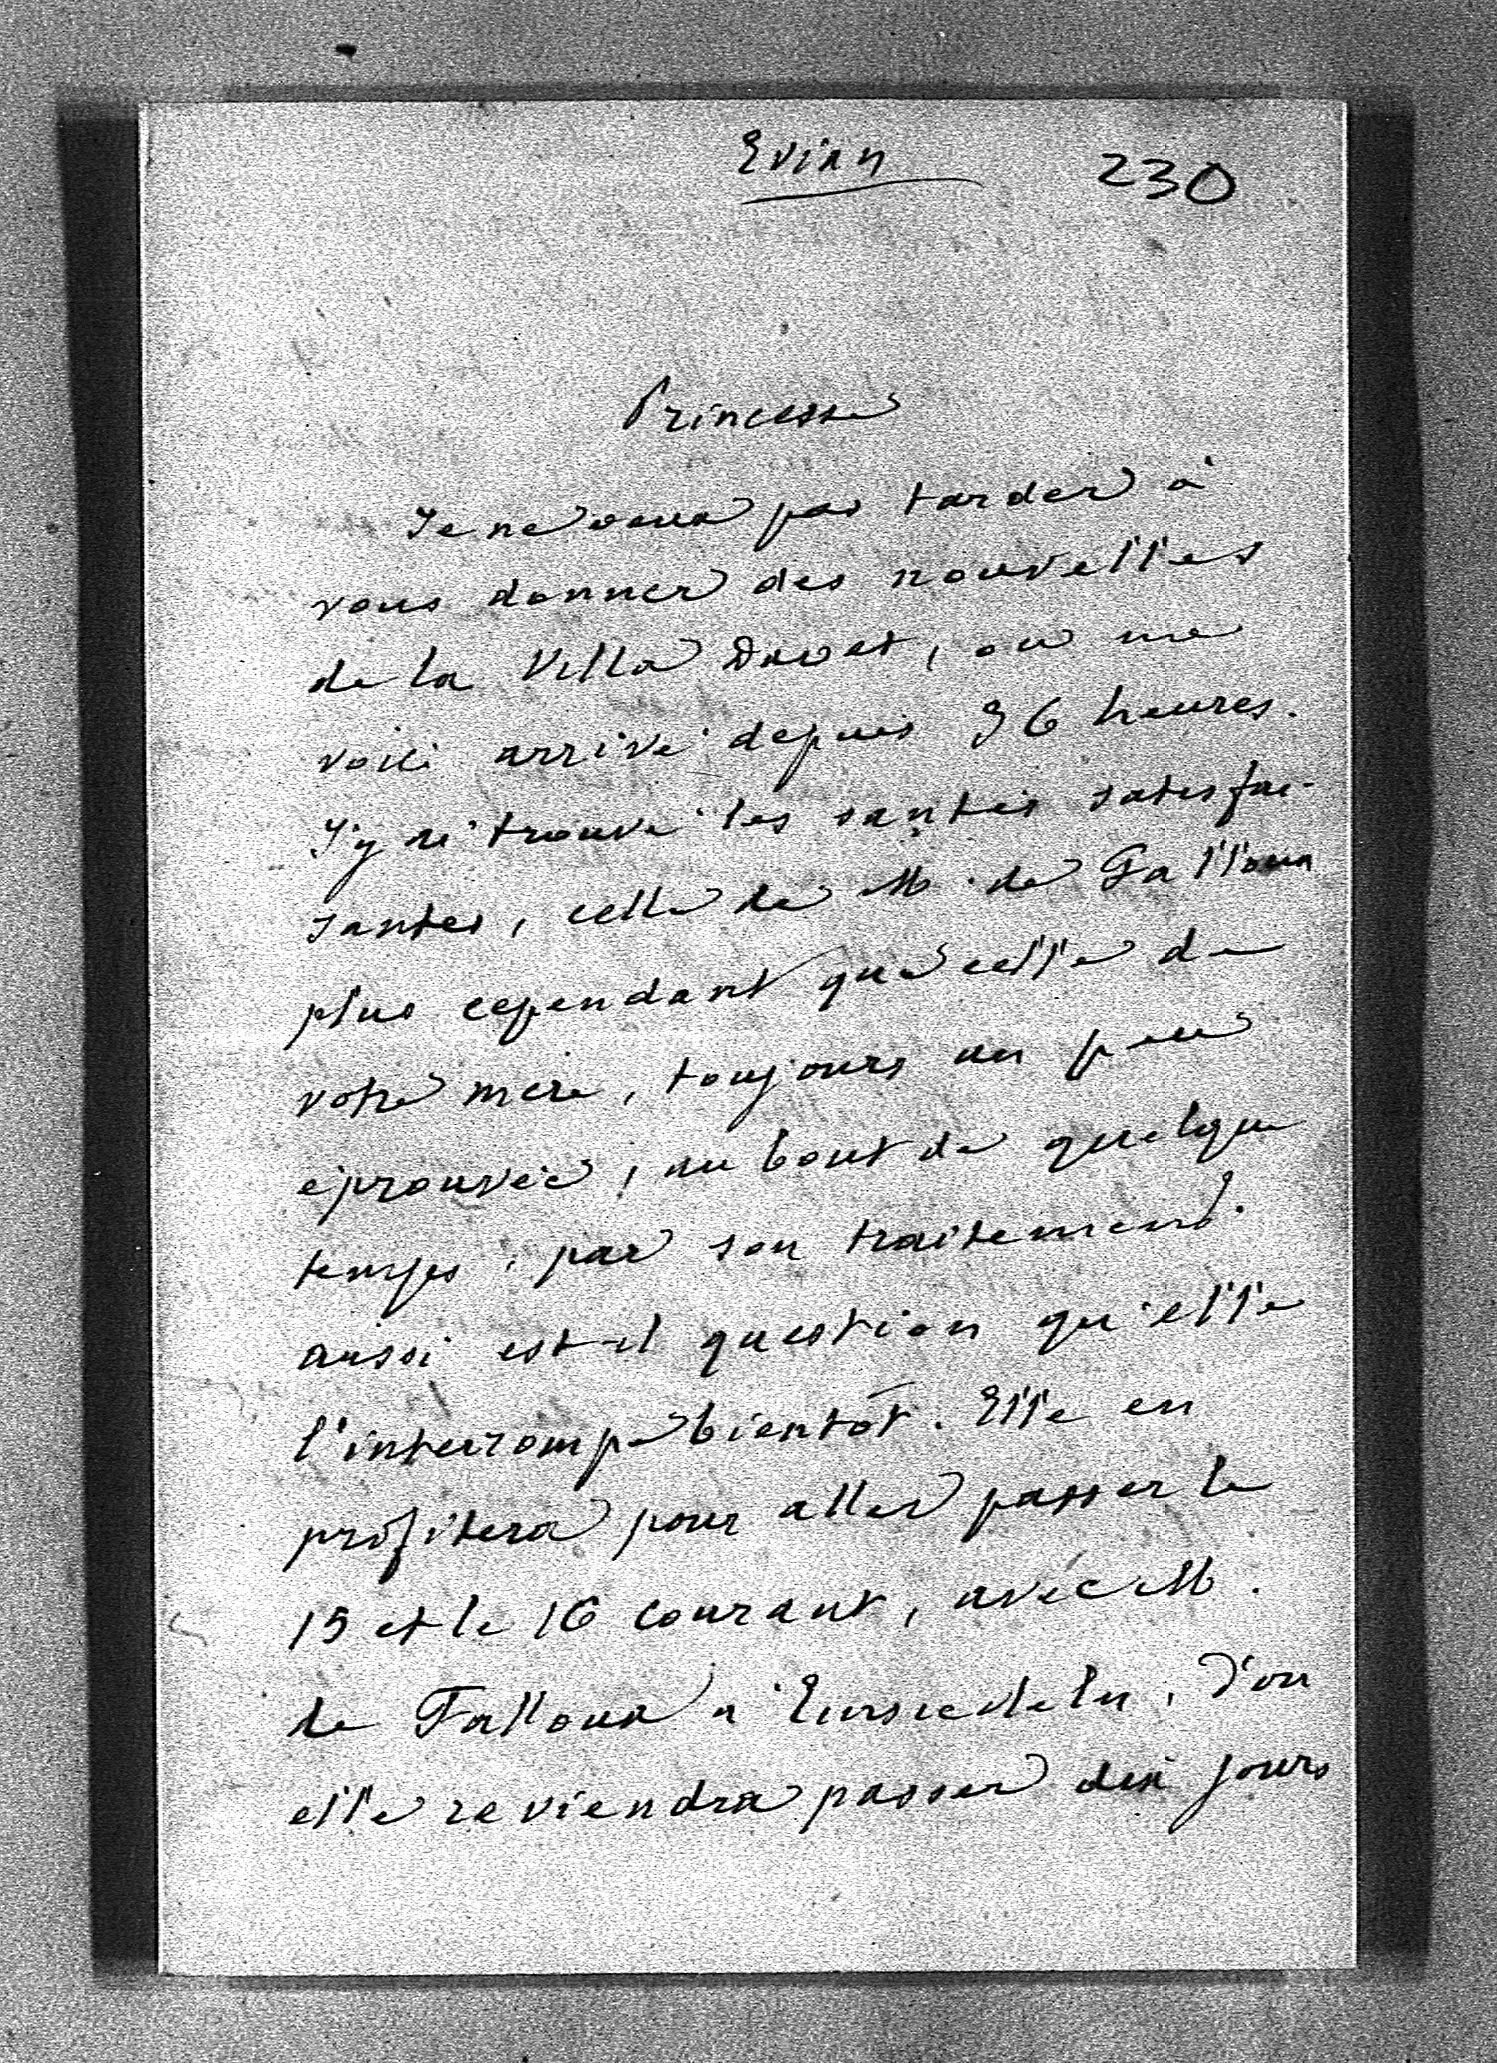 Evian
230
Princesse
Je ne veux pas tarder à
vous donner des nouvelles
de la Villa Davet, ou me
voici arrivé depuis 36 heures.
J'y ai trouvé les santés satisfai-
santes, celle de M. de Falloux
plus cependant que celle de
votre mère, toujours un peu
éprouvée, au bout de quelque
temps, par son traitement.
aussi est-il question qu'elle
l'interrompe bientôt. Elle en
profitera pour aller passer le
15 et le 16 courant, avec M.
de Falloux a Einsiedeln, d'ou
elle reviendra passer dix jours